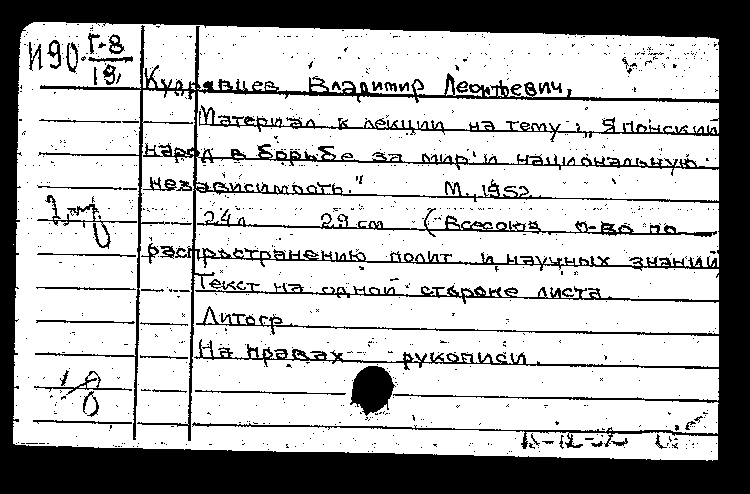 И90 Г-8
18,
Кудрявцев, Владимир Леонтьевич,
Материал к лекции на тему: „Японский
народ в борьбе за мир и национальную
независимость." М., 1952
24 л. 29 см (Всесоюз. о-во по
распространению полит. и научных знаний
Текст на одной стороне листа.
Литогр.
На правах рукописи.